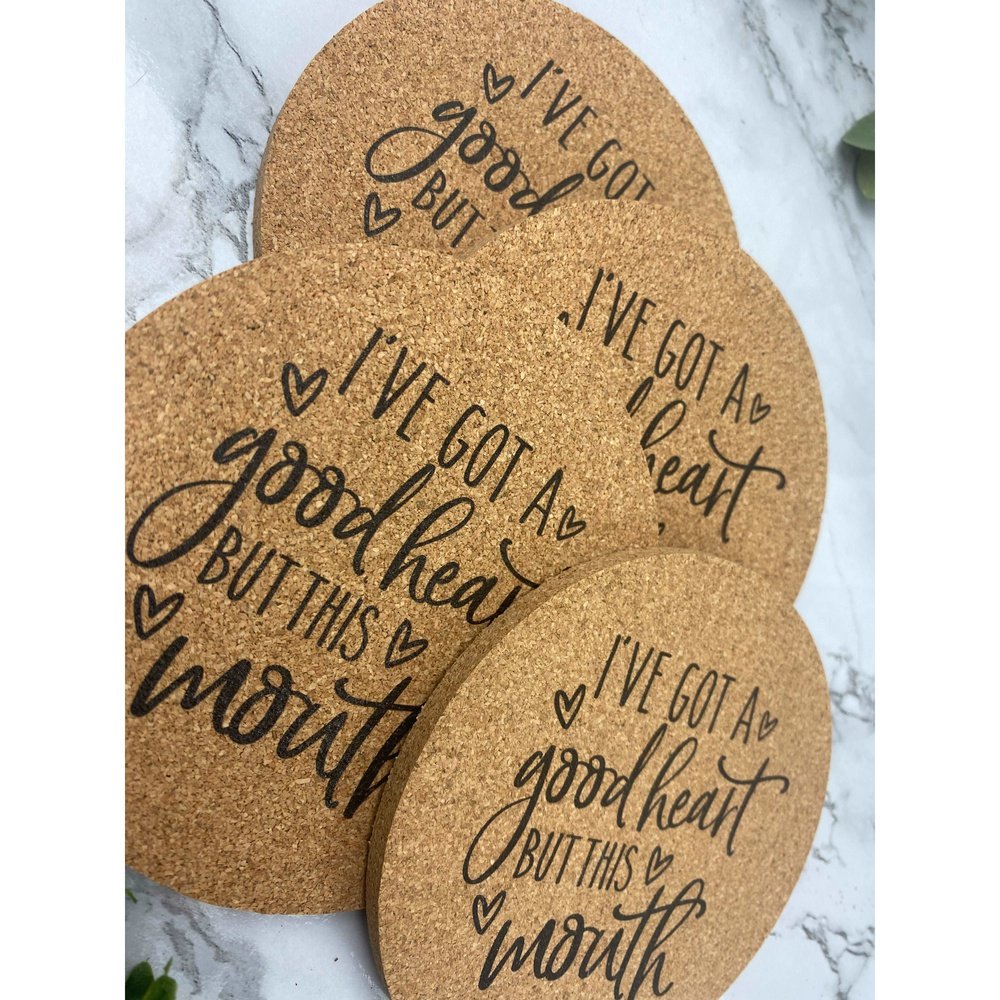 I'VE GOT
good
BUT
I'VE GOT A
heart
I'VE GOT A
good hea
BUT THIS
mouth
I'VE GOT A
good heart
BUT THIS
mouth